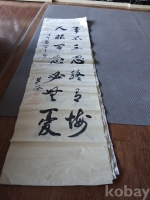 事不三思終有悔
人能百忍必無憂
kobay